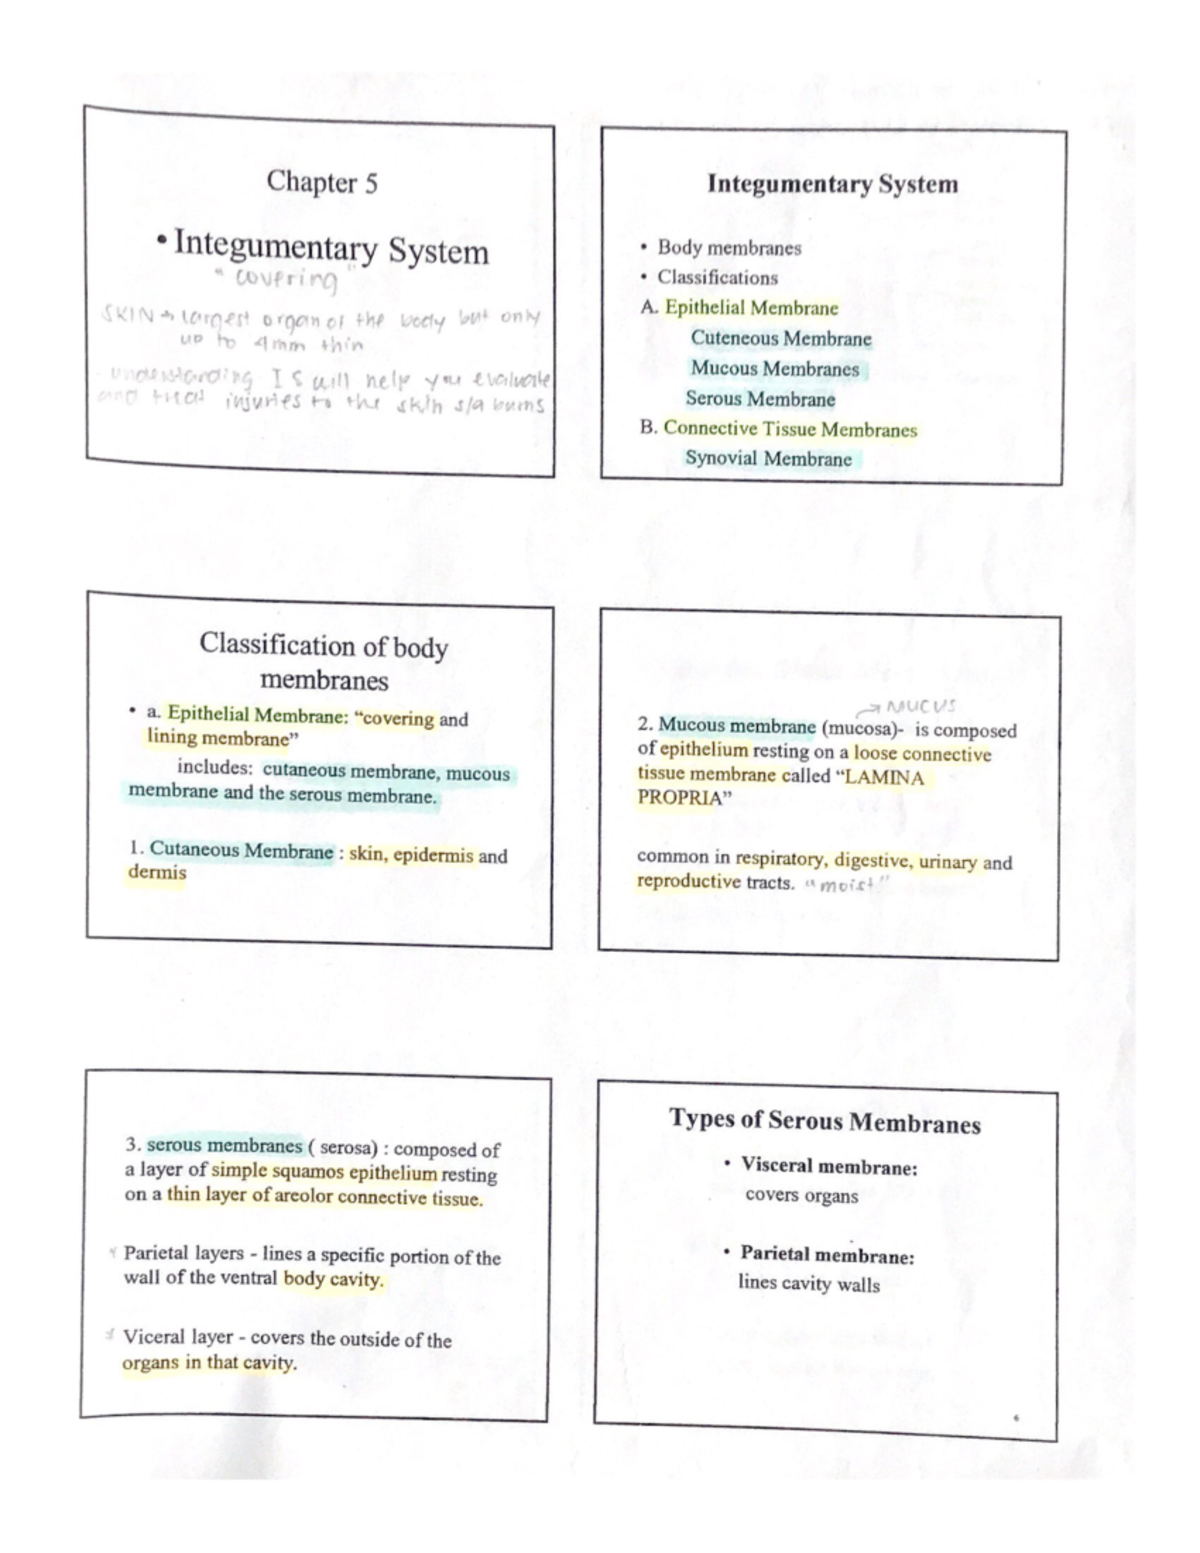 Chapter 5
• Integumentary System
"covering"
SKIN → largest organ of the body but only
up to 4mm thin
- understanding IS will help you evaluate
and treat injuries to the skin s/a burns
Integumentary System
• Body membranes
• Classifications
A. Epithelial Membrane
Cuteneous Membrane
Mucous Membranes
Serous Membrane
B. Connective Tissue Membranes
Synovial Membrane
Classification of body
membranes
• a. Epithelial Membrane: “covering and
lining membrane”
includes: cutaneous membrane, mucous
membrane and the serous membrane.
1. Cutaneous Membrane : skin, epidermis and
dermis
→ MUCUS
2. Mucous membrane (mucosa)- is composed
of epithelium resting on a loose connective
tissue membrane called “LAMINA
PROPRIA”
common in respiratory, digestive, urinary and
reproductive tracts. "moist"
3. serous membranes ( serosa) : composed of
a layer of simple squamos epithelium resting
on a thin layer of areolor connective tissue.
Parietal layers - lines a specific portion of the
wall of the ventral body cavity.
Viceral layer - covers the outside of the
organs in that cavity.
Types of Serous Membranes
• Visceral membrane:
covers organs
• Parietal membrane:
lines cavity walls